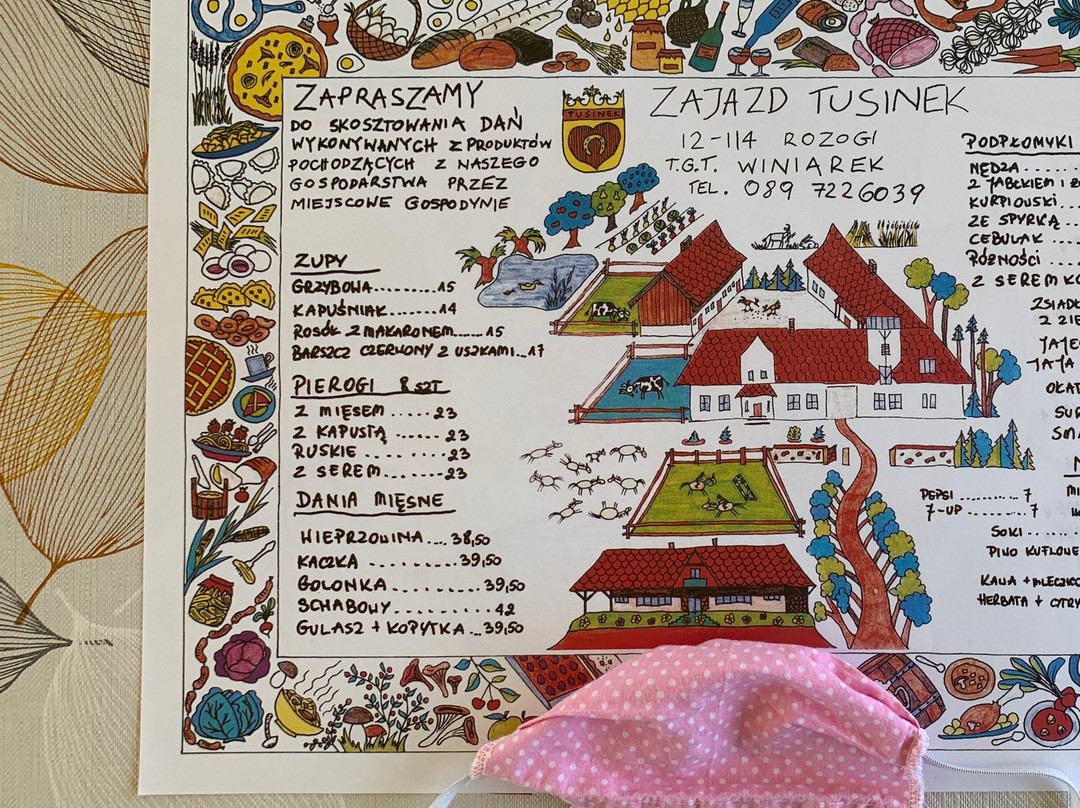 ZAPRASZAMY
DO SKOSZTOWANIA DAŃ
WYKONYWANYCH Z PRODUKTÓW
POCHODZĄCYCH Z NASZEGO
GOSPODARSTWA PRZEZ
MIEJSCOWE GOSPODYNIE
TUSINEK
ZAJAZD TUSINEK
12-114 ROZOGI
T.G.T. WINIAREK
TEL. 089 7226039
ZUPY
GRZYBOWA.........15
KAPUŚNIAK.........14
ROSÓŁ Z MAKARONEM......15
BARSZCZ CZERWONY Z USZKAMI...17
PIEROGI 8 SZT
Z MIĘSEM.....23
Z KAPUSTĄ ......23
RUSKIE ........23
Z SEREM.....23
DANIA MIĘSNE
WIEPRZOWINA....38,50
KACZKA .........39,50
GOLONKA.........39,50
SCHABOWY.........42
GULASZ + KOPYTKA...39,50
PODPŁOMYKI
NĘDZA.....
Z JABŁKIEM I
KURPIOWSKI...
ZE SPYRKĄ...
CEBULAK ....
RÓŻNOŚCI
Z SEREM
Z
PEPSI ............7
7-UP ............7
SOKI .....
PIWO
KAWA +
HERBATA +